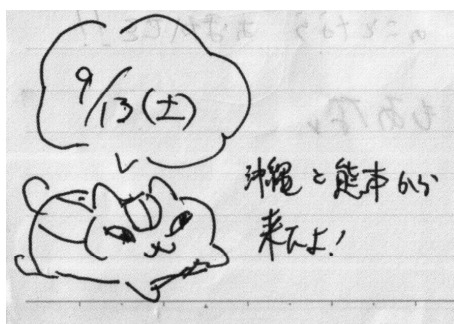 9/13(土)
沖縄と熊本から
来たよ!